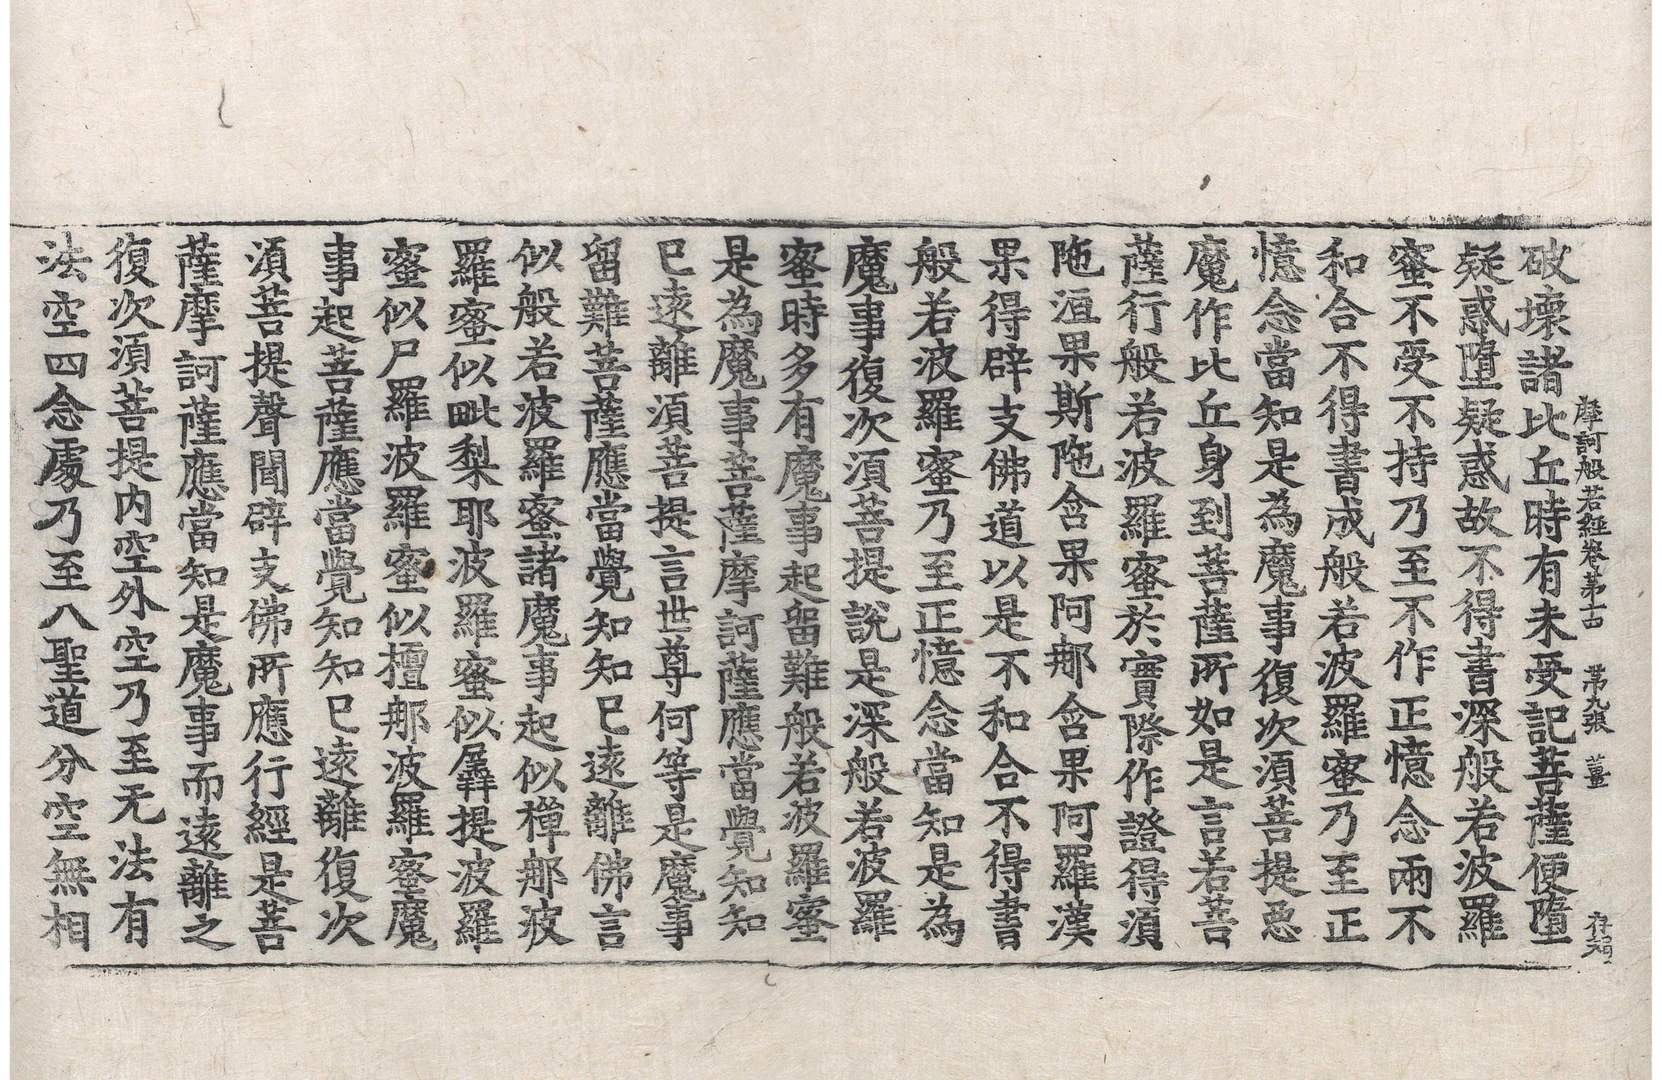 摩訶般若經卷第十四 第九張 薑
破壞諸比丘時有未受記菩薩便墮
疑惑墮疑惑故不得書深般若波羅
蜜不受不持乃至不作正憶念兩不
和合不得書成般若波羅蜜乃至正
憶念當知是為魔事復次須菩提惡
魔作比丘身到菩薩所如是言若菩
薩行般若波羅蜜於實際作證得須
陁洹果斯陁含果阿那含果阿羅漢
果得辟支佛道以是不和合不得書
般若波羅蜜乃至正憶念當知是為
魔事復次須菩提說是深般若波羅
蜜時多有魔事起留難般若波羅蜜
是為魔事菩薩摩訶薩應當覺知知
已遠離須菩提言世尊何等是魔事
留難菩薩應當覺知知已遠離佛言
似般若波羅蜜諸魔事起似檀那波
羅蜜似毗梨耶波羅蜜似羼提波羅
蜜似尸羅波羅蜜似檀那波羅蜜魔
事起菩薩應當覺知知已遠離復次
須菩提聲聞辟支佛所應行經是菩
薩摩訶薩應當知是魔事而遠離之
復次須菩提内空外空乃至无法有
法空四念處乃至八聖道分空無相